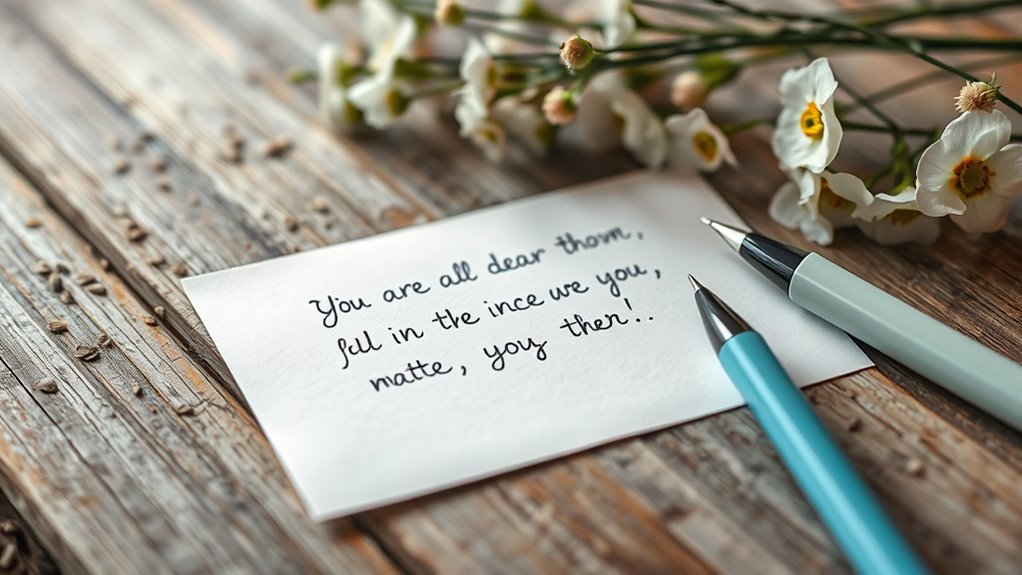 You are all dear thom,
fill in the ince we you,
matte, yoy then!..